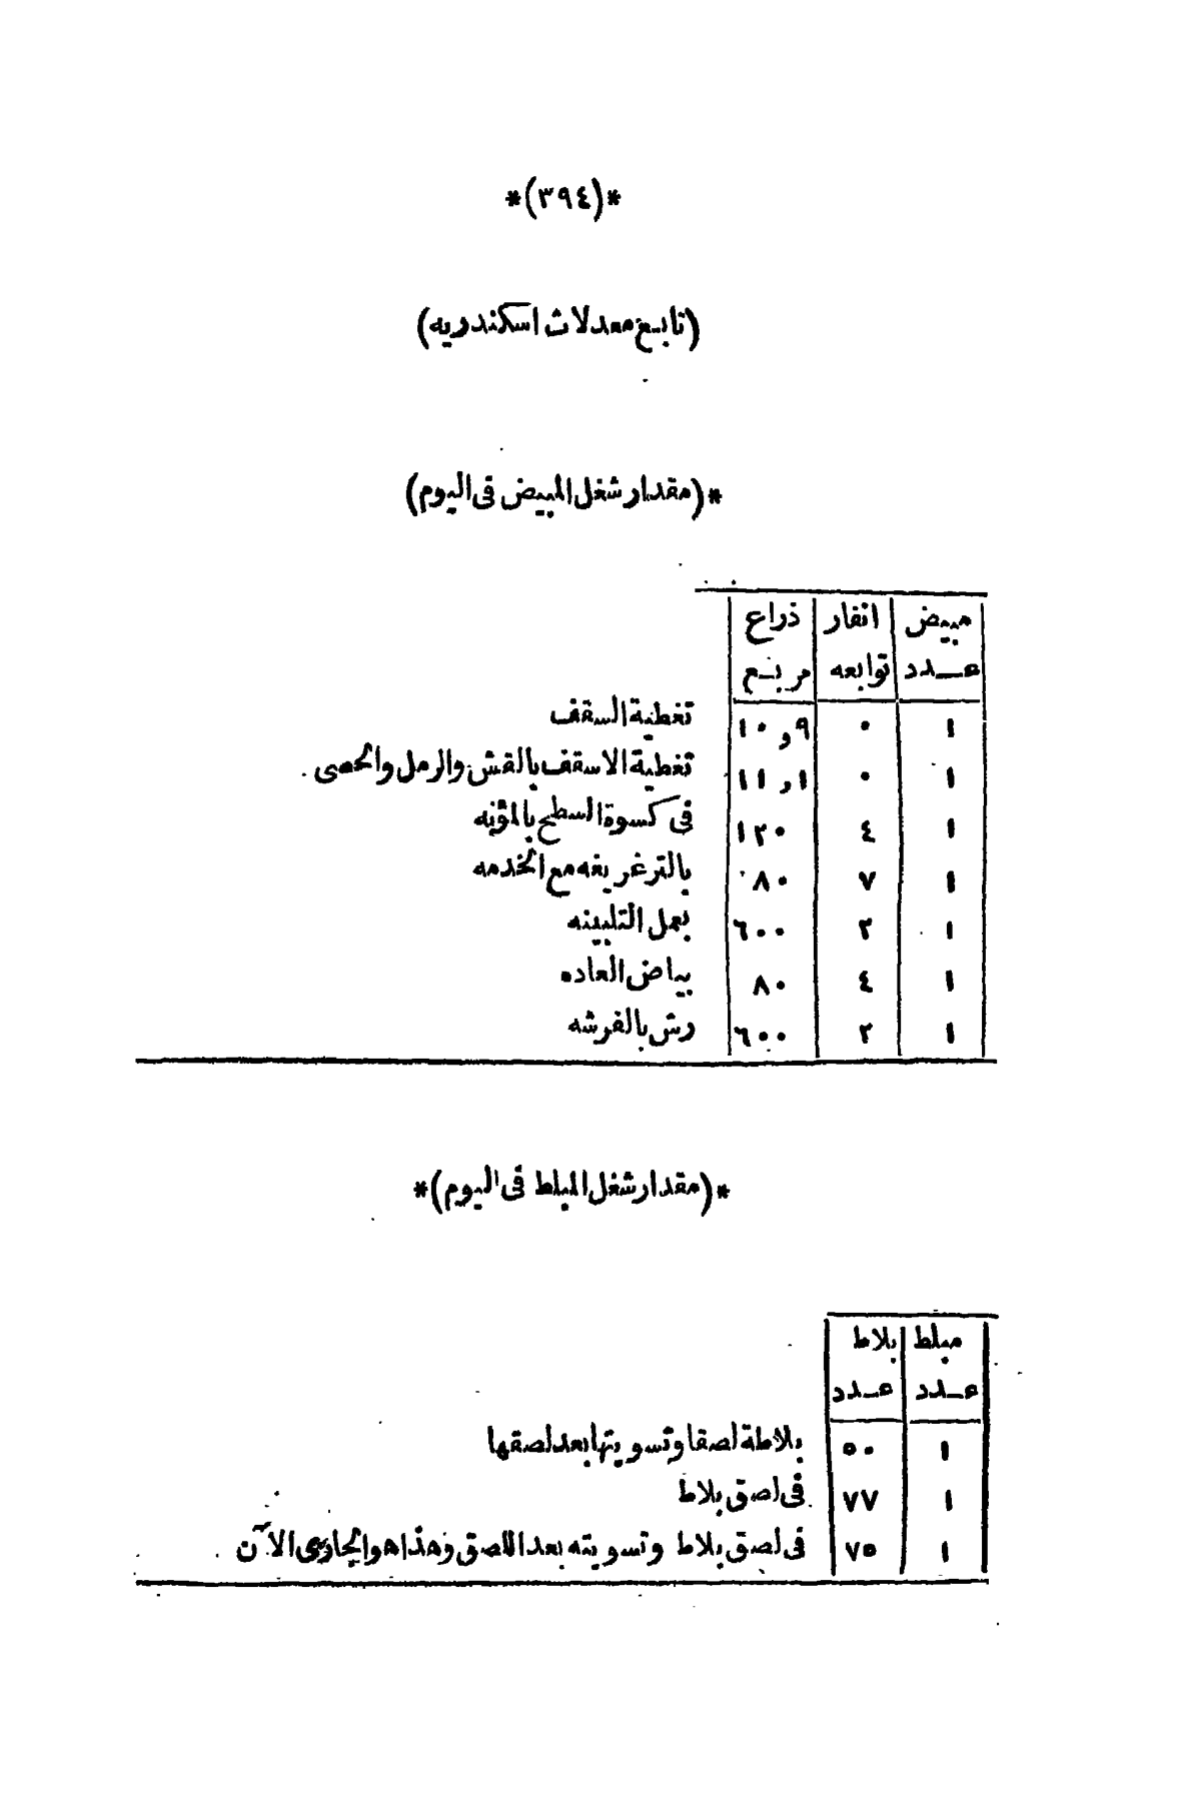 *(٣٩٤)*
(تابع معدلات اسكندريه)
*(مقدار شغل المبيض فى اليوم)
مبيض انفار ذراع
عدد توابعه مربع
١ ٠ ٩ر١٠ تغطية السقف
١ ٠ ١ر١١ تغطية الاسقف بالقش والرمل والحصى
١ ٤ ١٢٠ فى كسوة السطح بالمؤنه
١ ٧ ٨٠ بالترغريغه مع الخدمه
١ ٢ ٦٠٠ بعمل التلبينه
١ ٤ ٨٠ بياض العاده
١ ٢ ٦٠٠ رش بالفرشه
*(مقدار شغل المبلط فى اليوم)*
مبلط بلاط
عدد عدد
١ ٥٠ بلاطة لصقا وتسويتها بعد لصقها
١ ٧٧ فى لصق بلاط
١ ٧٥ فى لصق بلاط وتسويته بعد اللصق وهذا هو الجارى الآن